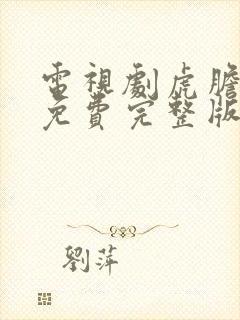 電視劇虎膽
免費完整版
劉萍